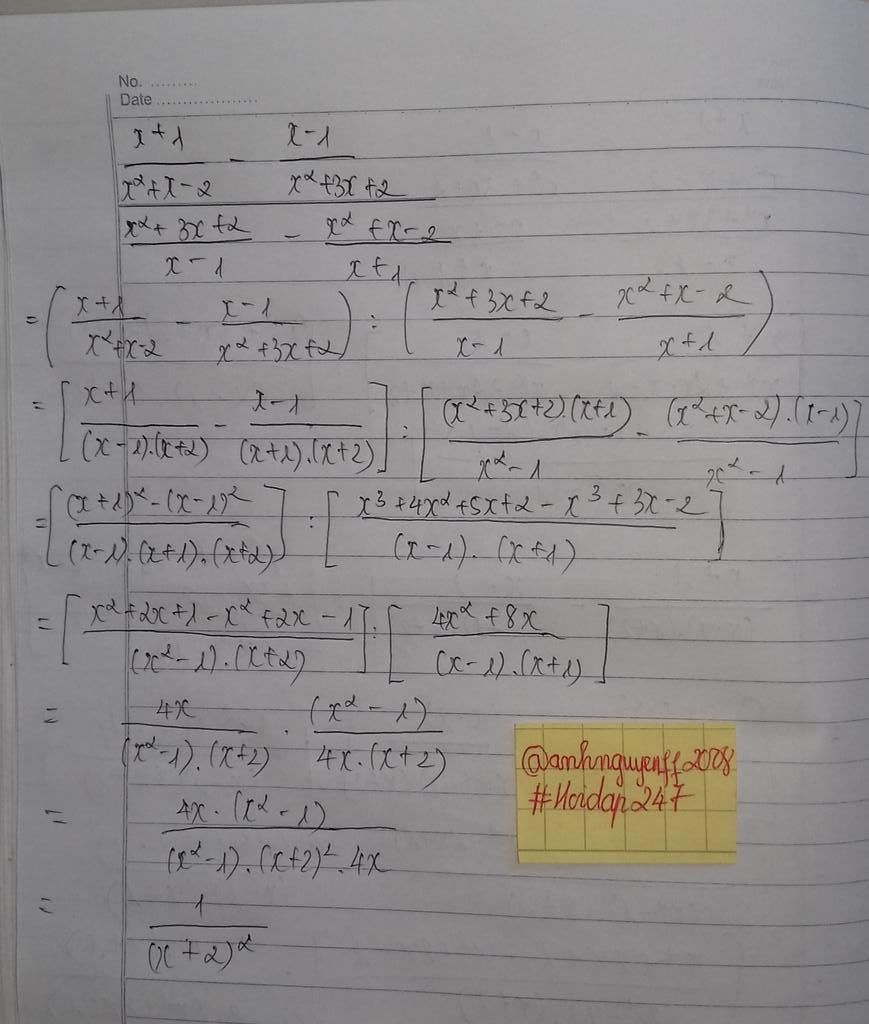 No. .........
Date ...................
x+1 / x²+x-2 - x-1 / x²+3x+2
x²+3x+2 / x-1 - x²+x-2 / x+1
= ( x+1 / x²+x-2 - x-1 / x²+3x+2 ) : ( x²+3x+2 / x-1 - x²+x-2 / x+1 )
= [ x+1 / (x-1).(x+2) - x-1 / (x+1).(x+2) ] : [ (x²+3x+2).(x+1) / x²-1 - (x²+x-2).(x-1) / x²-1 ]
= [ (x+1)²-(x-1)² / (x-1).(x+1).(x+2) ] : [ x³+4x²+5x+2-x³+3x-2 / (x-1).(x+1) ]
= [ x²+2x+1-x²+2x-1 / (x²-1).(x+2) ] : [ 4x²+8x / (x-1).(x+1) ]
= 4x / (x²-1).(x+2) . (x²-1) / 4x.(x+2)
= 4x.(x²-1) / (x²-1).(x+2)².4x
= 1 / (x+2)²
@anhnguyenff2008
#Hoidap247